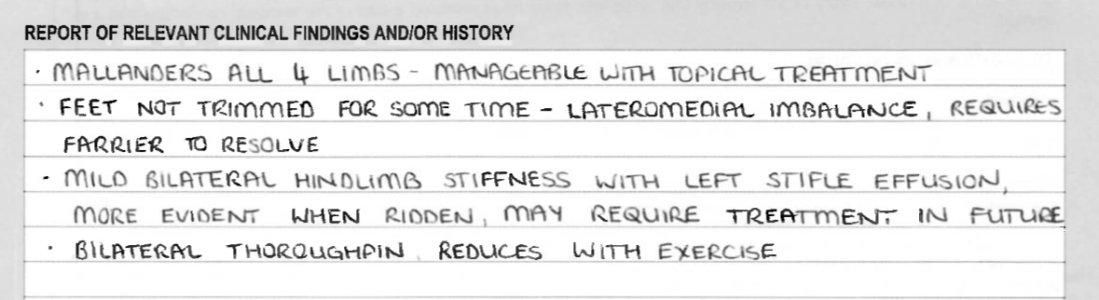 REPORT OF RELEVANT CLINICAL FINDINGS AND/OR HISTORY
· MALLANDERS ALL 4 LIMBS - MANAGEABLE WITH TOPICAL TREATMENT
· FEET NOT TRIMMED FOR SOME TIME - LATEROMEDIAL IMBALANCE, REQUIRES
FARRIER TO RESOLVE
· MILD BILATERAL HINDLIMB STIFFNESS WITH LEFT STIFLE EFFUSION,
MORE EVIDENT WHEN RIDDEN, MAY REQUIRE TREATMENT IN FUTURE
· BILATERAL THOROUGHPIN REDUCES WITH EXERCISE